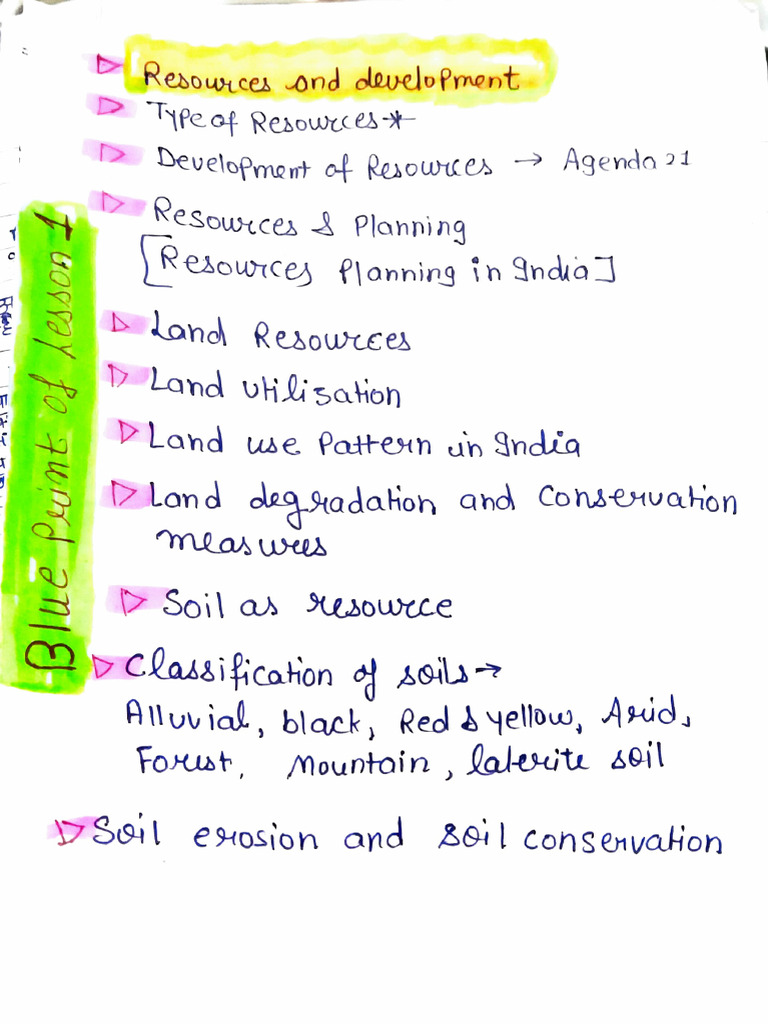 Blue Print of Lesson 1
Resources and development
Type of Resources-*
Development of Resources → Agenda 21
Resources & Planning
[Resources Planning in India]
Land Resources
Land utilisation
Land use Pattern in India
Land degradation and conservation
measures
Soil as resource
Classification of soils →
Alluvial, black, Red & yellow, Arid,
Forest, Mountain, laterite soil
Soil erosion and soil conservation